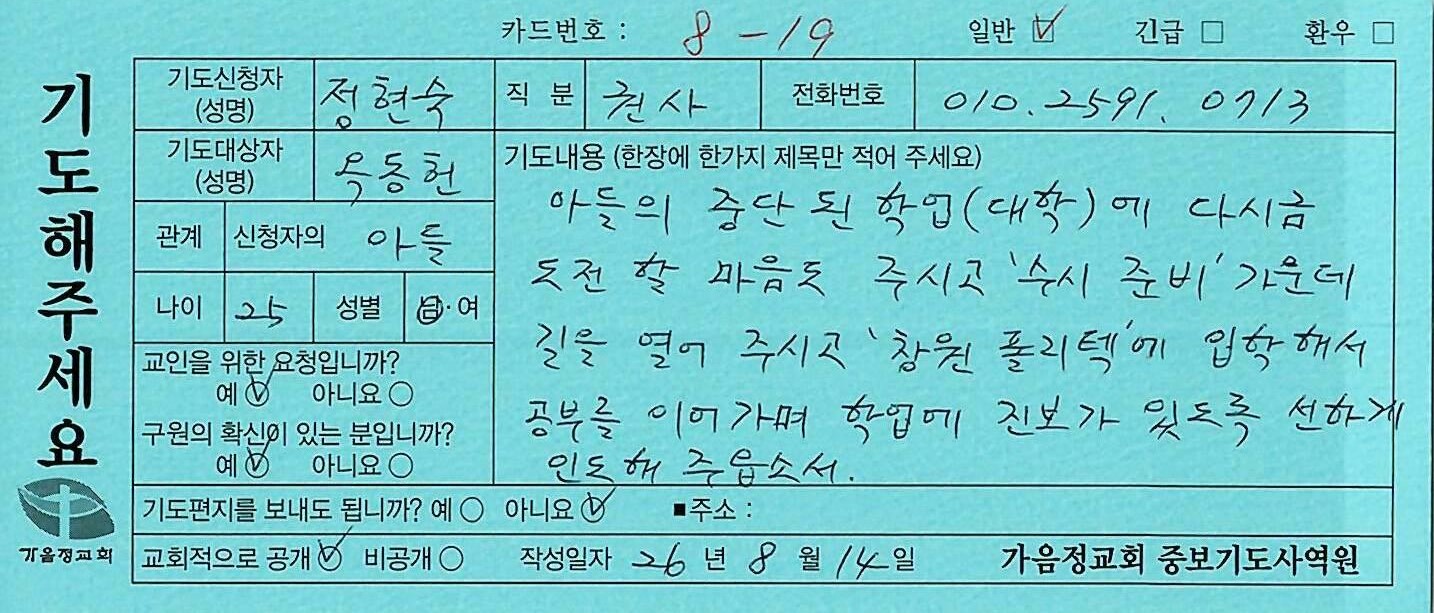 카드번호 : 8-19 일반 ☑ 긴급 □ 환우 □
기도해주세요
기도신청자 (성명) 정현숙 직 분 권사 전화번호 010.2591.0713
기도대상자 (성명) 옥동헌
관계 신청자의 아들
나이 25 성별 남·여
교인을 위한 요청입니까?
예 ☑ 아니요 ○
구원의 확신이 있는 분입니까?
예 ☑ 아니요 ○
기도내용 (한장에 한가지 제목만 적어 주세요)
아들의 중단 된 학업(대학)에 다시금
도전 할 마음도 주시고 '수시 준비' 가운데
길을 열어 주시고 '창원 폴리텍'에 입학해서
공부를 이어가며 학업에 진보가 있도록 선하게
인도해 주옵소서.
기도편지를 보내도 됩니까? 예 ○ 아니요 ☑ ■주소 :
교회적으로 공개 ☑ 비공개 ○ 작성일자 26 년 8 월 14 일 가음정교회 중보기도사역원
가음정교회